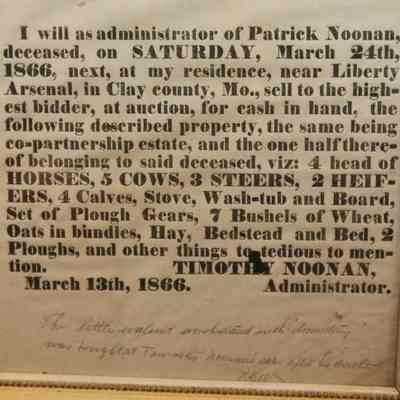 I will as administrator of Patrick Noonan,
deceased, on SATURDAY, March 24th,
1866, next, at my residence, near Liberty
Arsenal, in Clay county, Mo., sell to the high-
est bidder, at auction, for cash in hand, the
following described property, the same being
co-partnership estate, and the one half there-
of belonging to said deceased, viz: 4 head of
HORSES, 5 COWS, 3 STEERS, 2 HEIF-
ERS, 4 Calves, Stove, Wash-tub and Board,
Set of Plough Gears, 7 Bushels of Wheat,
Oats in bundies, Hay, Bedstead and Bed, 2
Ploughs, and other things to tedious to men-
tion. TIMOTHY NOONAN,
March 13th, 1866. Administrator.
The little walnut with
was bought at